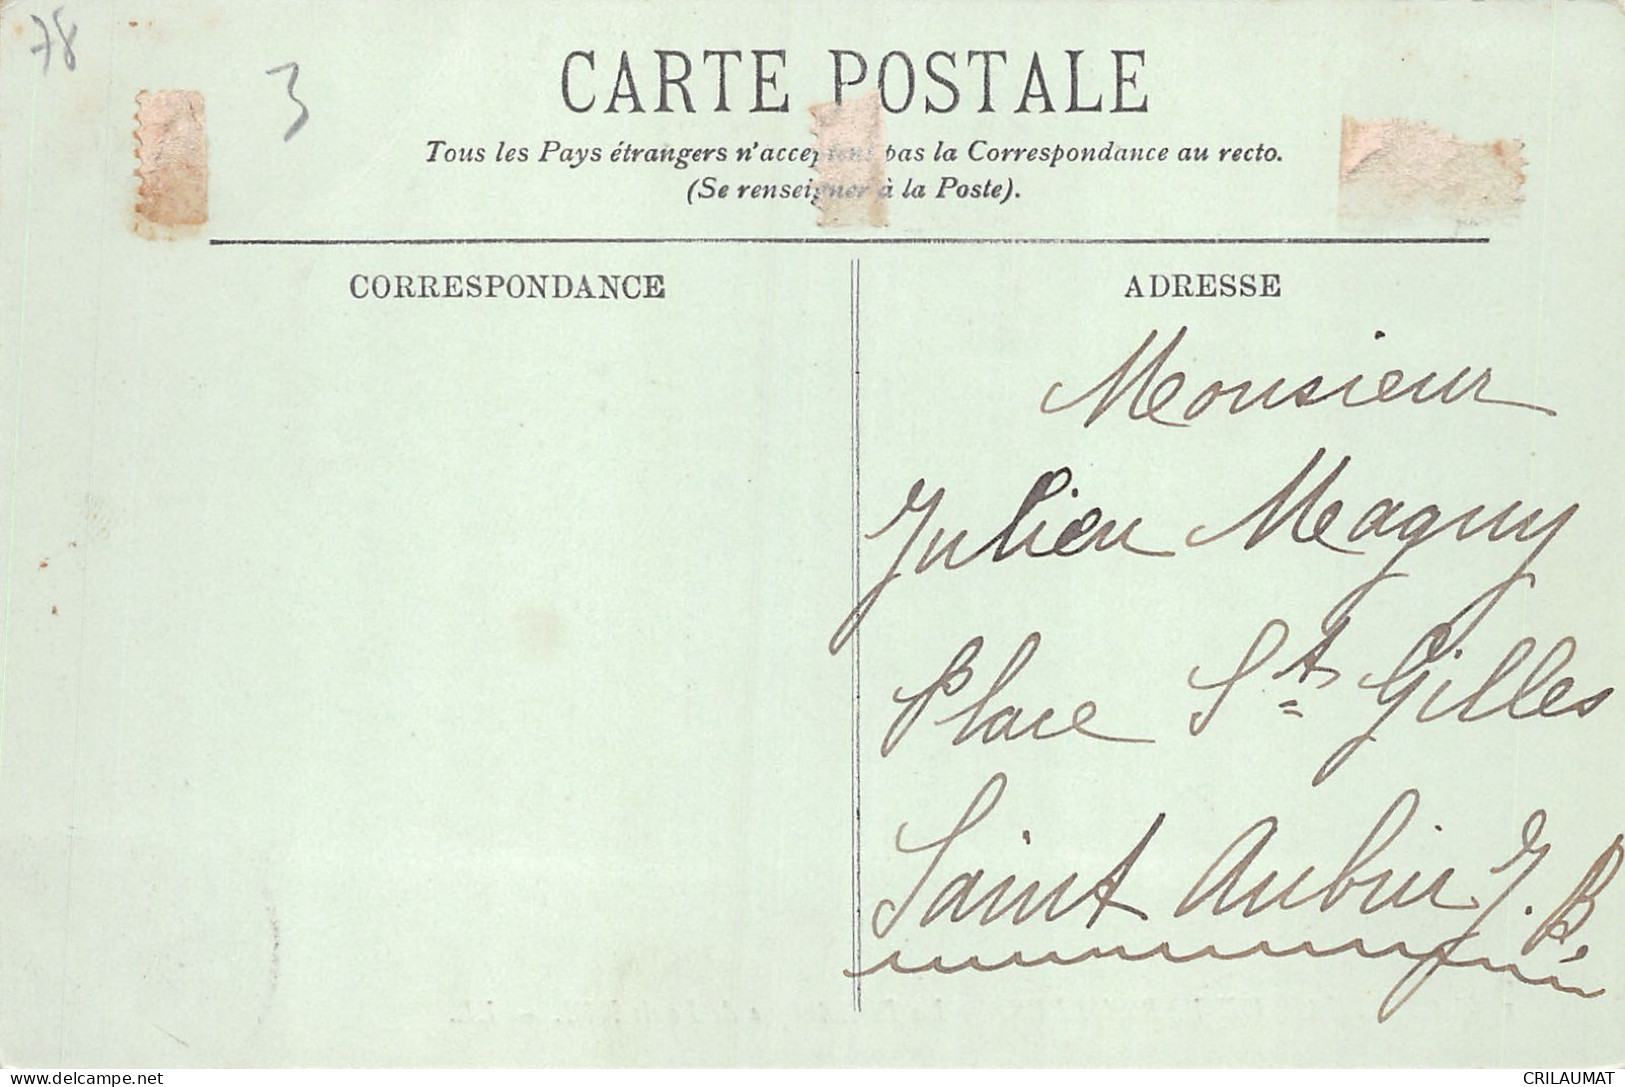 78
3
CARTE POSTALE
Tous les Pays étrangers n'acceptent pas la Correspondance au recto.
(Se renseigner à la Poste).
CORRESPONDANCE
ADRESSE
Monsieur
Julien Magny
Place St Gilles
Saint Aubin J. B.
www.delcampe.net
CRILAUMAT